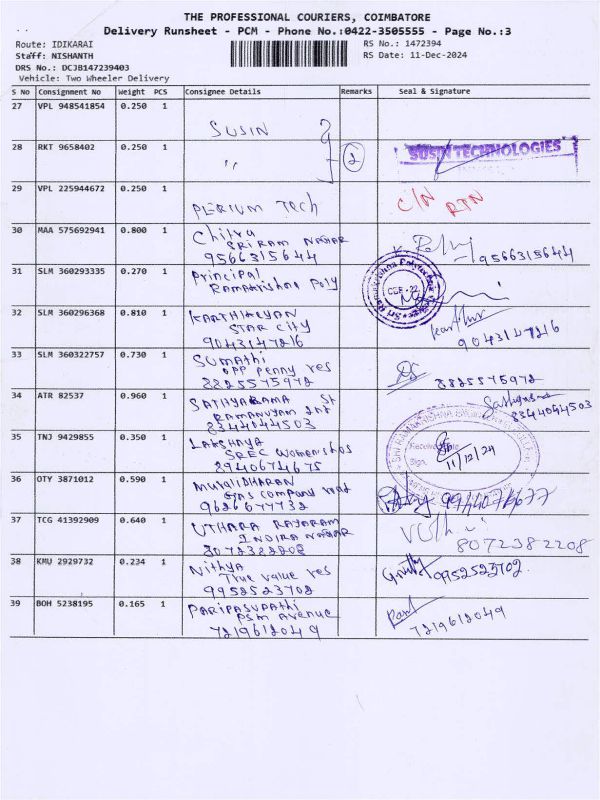 THE PROFESSIONAL COURIERS, COIMBATORE
Delivery Runsheet - PCM - Phone No.:0422-3505555 - Page No.:3
Route: IDIKARAI
RS No.: 1472394
Staff: NISHANTH
RS Date: 11-Dec-2024
DRS No.: DCJB147239403
Vehicle: Two Wheeler Delivery
S No Consignment No Weight PCS Consignee Details Remarks Seal & Signature
27 VPL 948541854 0.250 1
SUSIN
28 RKT 9658402 0.250 1
" 2 SUSIN TECHNOLOGIES
29 VPL 225944672 0.250 1
PERIUM Tech C/N RTN
30 MAA 575692941 0.800 1 Chitra
SRI RAM NAGAR
9566315644 9566315644
31 SLM 360293335 0.270 1 Principal
Ramakrishna Poly
32 SLM 360296368 0.810 1 KARTHIKEYAN
STAR City
9043147216 9043147216
33 SLM 360322757 0.730 1 SUMAthi
OPP penny yes
8825575972 8825575972
34 ATR 82537 0.960 1 SATHYABAMA St
RAMANUJAM
8344044503 8344044503
35 TNJ 9429855 0.350 1 LAKSHAYA
SREC Womens hos
8940674675 11/12/24
36 OTY 3871012 0.590 1 MURALIDHARAN
GAS company
37 TCG 41392909 0.640 1 UTHARA RAJARAM
INDIRA NAGAR
8072382208 8072382208
38 KMU 2929732 0.234 1 Nithya
True value yes
9952523702 9952523702
39 BOH 5238195 0.165 1 PARIPASUPAthi
PSM Avenue
7219612049 7219612049